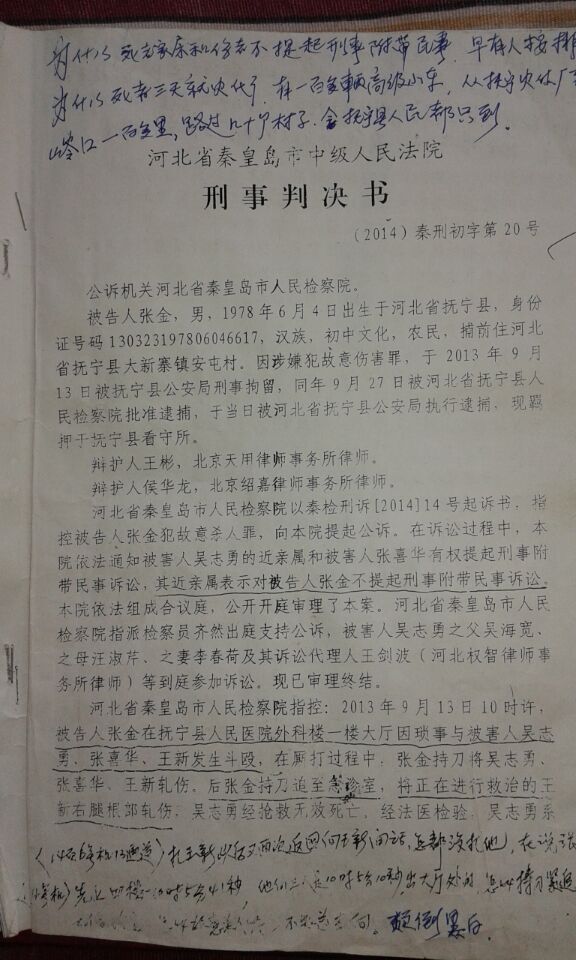 为什么死者家属和伤者不提起刑事附带民事，早有人安排
为什么死者三天就火化了，有一百多辆高级小车，从抚宁火化厂
岭口一百多里，路过几十个村子，全抚宁县人民都见到。
河北省秦皇岛市中级人民法院
刑事判决书
（2014）秦刑初字第20号
公诉机关河北省秦皇岛市人民检察院。
被告人张金，男，1978年6月4日出生于河北省抚宁县，身份
证号码130323197806046617，汉族，初中文化，农民，捕前住河北
省抚宁县大新寨镇安屯村。因涉嫌犯故意伤害罪，于2013年9月
13日被抚宁县公安局刑事拘留，同年9月27日被河北省抚宁县人
民检察院批准逮捕，于当日被河北省抚宁县公安局执行逮捕，现羁
押于抚宁县看守所。
辩护人王彬，北京天用律师事务所律师。
辩护人侯华龙，北京绍嘉律师事务所律师。
河北省秦皇岛市人民检察院以秦检刑诉[2014]14号起诉书，指
控被告人张金犯故意杀人罪，向本院提起公诉。在诉讼过程中，本
院依法通知被害人吴志勇的近亲属和被害人张喜华有权提起刑事附
带民事诉讼，其近亲属表示对被告人张金不提起刑事附带民事诉讼。
本院依法组成合议庭，公开开庭审理了本案。河北省秦皇岛市人民
检察院指派检察员齐然出庭支持公诉，被害人吴志勇之父吴海宽、
之母汪淑芹、之妻李春荷及其诉讼代理人王剑波（河北权智律师事
务所律师）等到庭参加诉讼。现已审理终结。
河北省秦皇岛市人民检察院指控：2013年9月13日10时许，
被告人张金在抚宁县人民医院外科楼一楼大厅因琐事与被害人吴志
勇、张喜华、王新发生斗殴，在厮打过程中，张金持刀将吴志勇、
张喜华、王新扎伤。后张金持刀追至急诊室，将正在进行救治的王
新右腿根部扎伤，吴志勇经抢救无效死亡。经法医检验，吴志勇系
扎王新以后又两次返回向王新问话，怎都没扎他，在说张
10时5分41秒，他们三人是10时5分10秒出大厅外的，怎么持刀紧追
颠倒黑白。